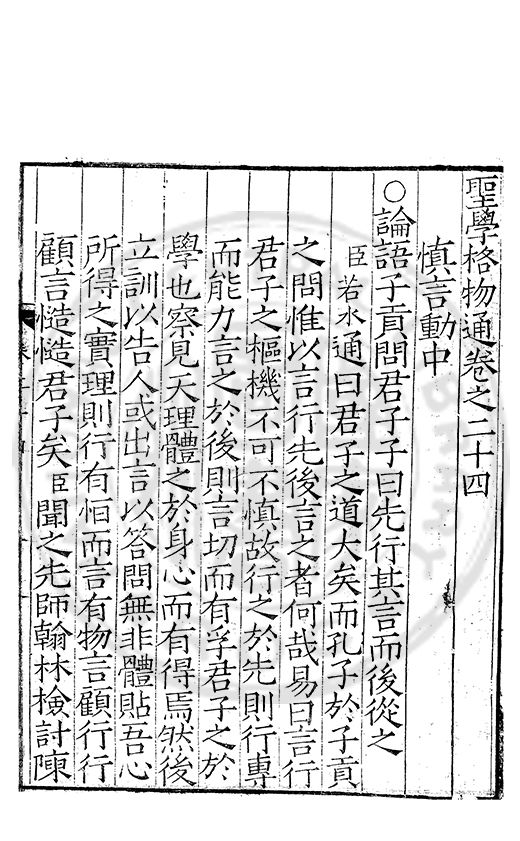 聖學格物通卷之二十四
慎言動中
○論語子貢問君子子曰先行其言而後從之
臣若水通曰君子之道大矣而孔子於子貢
之問惟以言行先後言之者何哉易曰言行
君子之樞機不可不慎故行之於先則行專
而能力言之於後則言切而有孚君子之於
學也察見天理體之於身心而有得焉然後
立訓以告人或出言以答問無非體貼吾心
所得之實理則行有恒而言有物言顧行行
顧言慥慥君子矣臣聞之先師翰林檢討陳